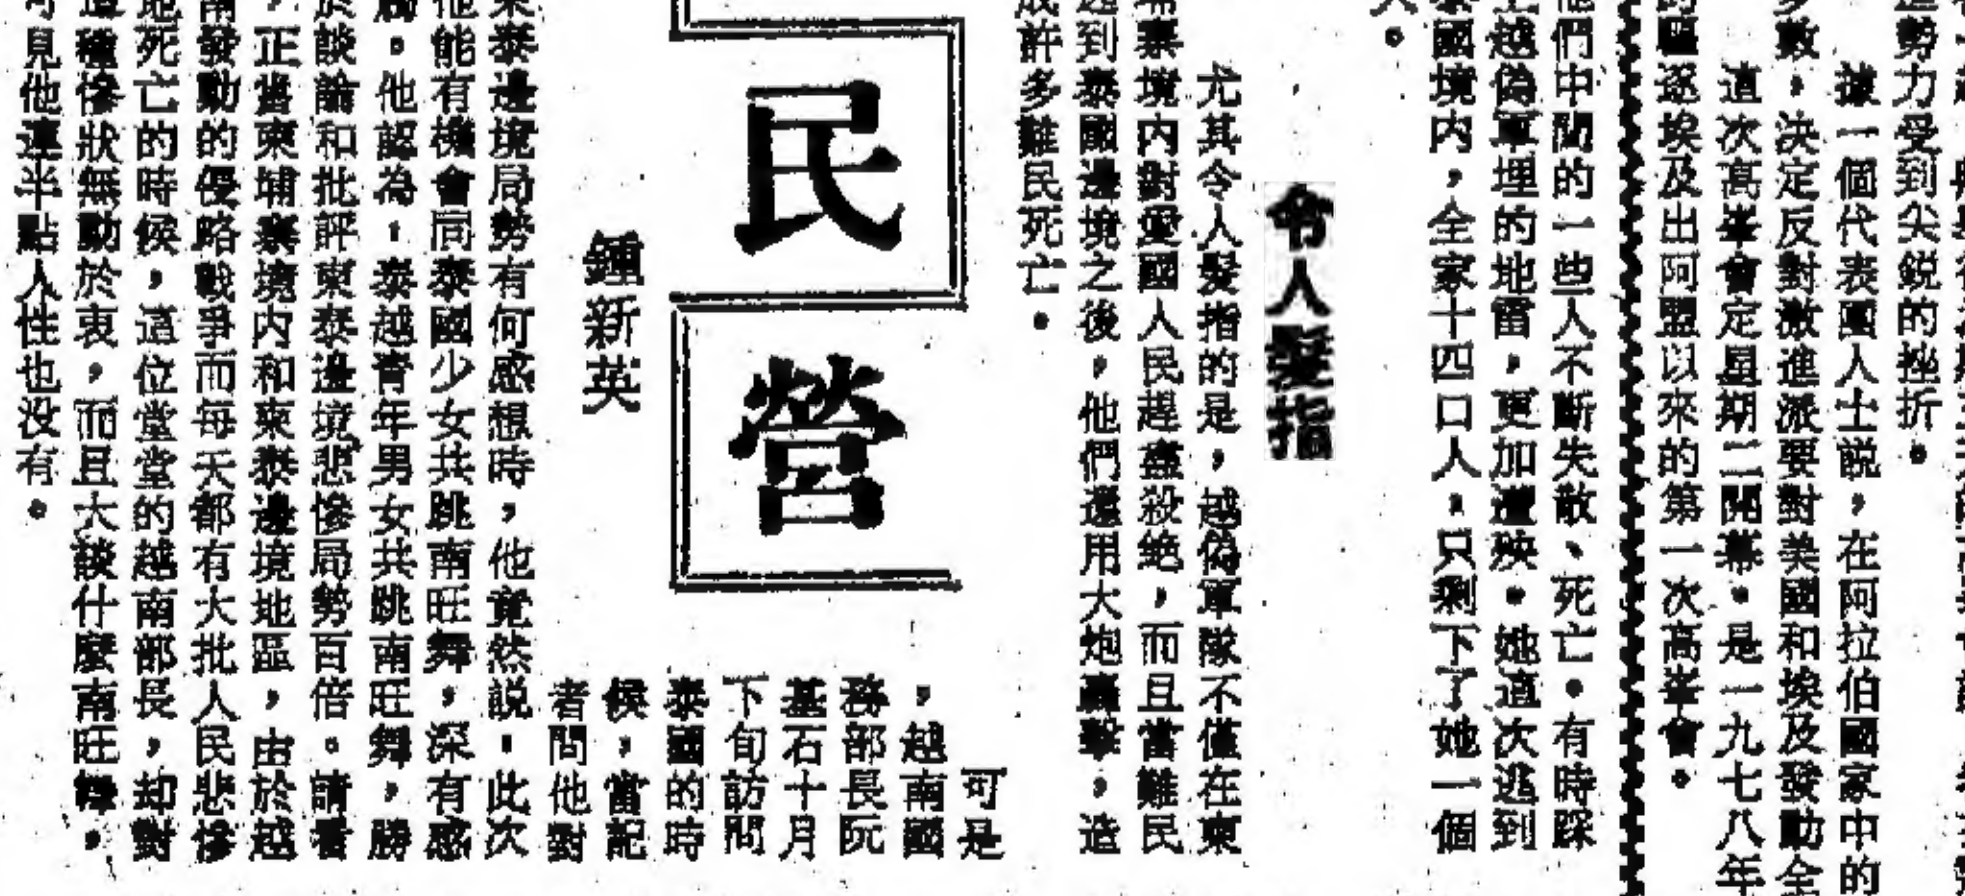 勢力受到尖銳的挫折。
據一個代表團人士説，在阿拉伯國家中的
多數，決定反對激進派要對美國和埃及發動全
這次高峯會定星期二開幕。是一九七八年
的驅逐埃及出阿盟以來的第一次高峯會。
他們中間的一些人不斷失散、死亡。有時踩
上越偽軍埋的地雷，更加遭殃。她這次逃到
泰國境内，全家十四口人，只剩下了她一個
人。
令人髮指
尤其令人髮指的是，越偽軍隊不僅在柬
埔寨境内對愛國人民趕盡殺絶，而且當難民
逃到泰國邊境之後，他們還用大炮轟擊，造
成許多難民死亡。
民營
鍾新英
可是
，越南國
務部長阮
基石十月
下旬訪問
泰國的時
候，當記
者問他對
柬泰邊境局勢有何感想時，他竟然説，此次
他能有機會同泰國少女共跳南旺舞，深有感
觸。他認為，泰越青年男女共跳南旺舞，勝
於談論和批評柬泰邊境悲慘局勢百倍。請看
，正當柬埔寨境内和柬泰邊境地區，由於越
南發動的侵略戰爭而每天都有大批人民悲慘
地死亡的時候，這位堂堂的越南部長，却對
這種慘狀無動於衷，而且大談什麼南旺舞。
可見他連半點人性也没有。